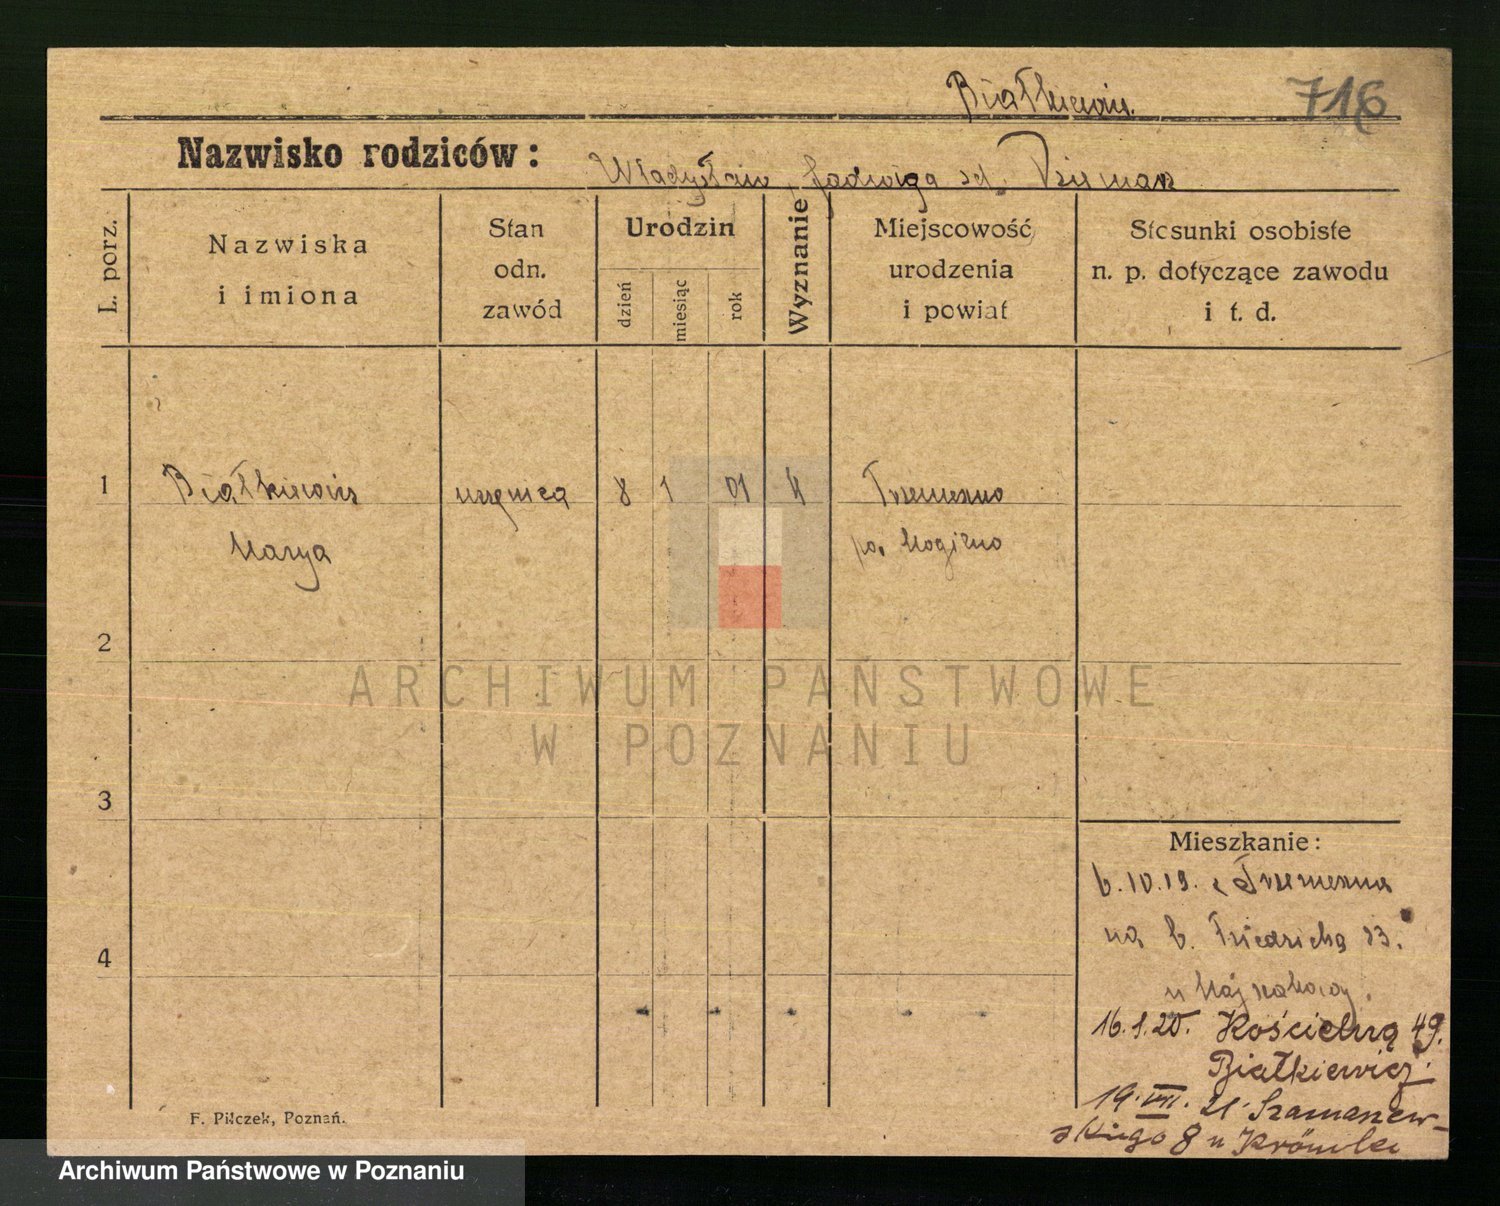 Białkiewicz. 716
Nazwisko rodziców: Władysław, Jadwiga zd.
L. porz.
Nazwiska i imiona
Stan odn. zawód
Urodzin
dzień
miesiąc
rok
Wyznanie
Miejscowość urodzenia i powiat
Stosunki osobiste n. p. dotyczące zawodu i t. d.
1 Białkiewicz 8 1 01 K Trzemeszno
Marya po. Mogilno
2
3
4
Mieszkanie:
6.10.19. z Trzemeszna
na b. Friedricha 23.
u
16.1.20. Kościelną 49.
Białkiewicz
19.VII.21. Szamarzew-
skiego 8 u
F. Pilczek, Poznań.
ARCHIWUM PAŃSTWOWE
W POZNANIU
Archiwum Państwowe w Poznaniu